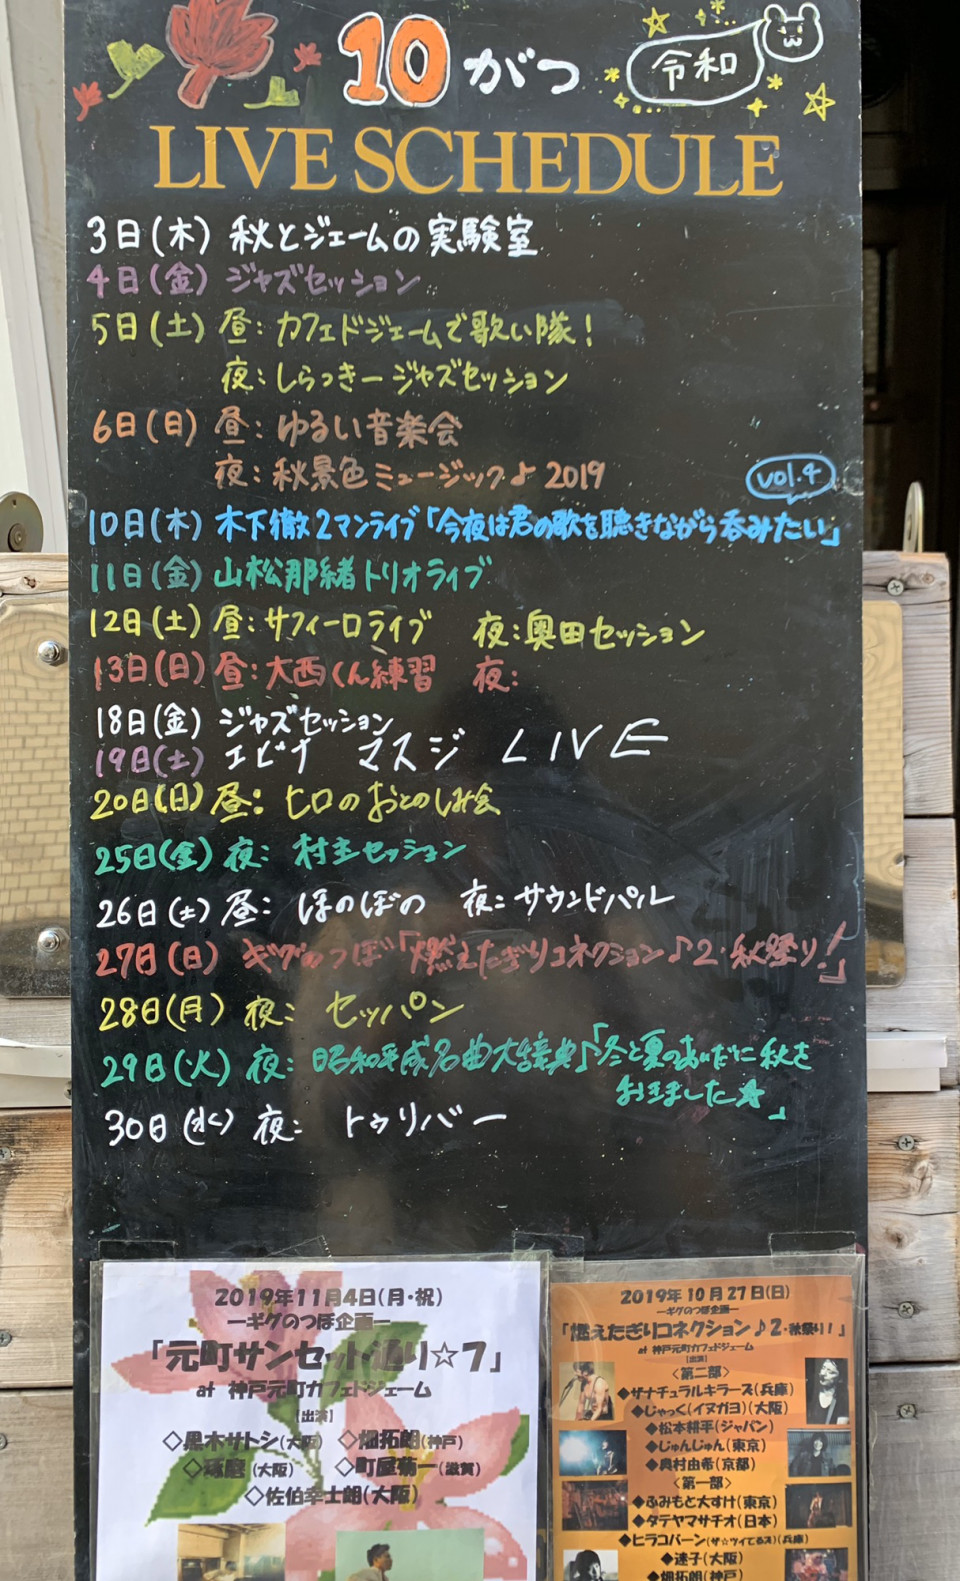 10がつ
令和
LIVE SCHEDULE
3日(木) 秋とジェームの実験室
4日(金) ジャズセッション
5日(土) 昼:カフェドジェームで歌い隊!
夜:しらっきージャズセッション
6日(日) 昼:ゆるい音楽会
夜:秋景色ミュージック♪2019
vol.4
10日(木) 木下徹2マンライブ「今夜は君の歌を聴きながら呑みたい」
11日(金) 山松那緒トリオライブ
12日(土) 昼:サフィーロライブ 夜:奥田セッション
13日(日) 昼:大西くん練習 夜:
18日(金) ジャズセッション
19日(土) エビナ マスジ LIVE
20日(日) 昼: ヒロのおとのしみ会
25日(金) 夜: 村主セッション
26日(土) 昼: ほのぼの 夜:サウンドパル
27日(日) ギグのつぼ「燃えたぎりコネクション♪2・秋祭り!」
28日(月) 夜: セッパン
29日(火) 夜: 昭和平成名曲大辞典♪「冬と夏のあいだに秋を
おきました☆」
30日(水) 夜: トゥリバー
2019年11月4日(月・祝)
ーギグのつぼ企画ー
「元町サンセット通り☆7」
at 神戸元町カフェドジェーム
【出演】
◇黒木サトシ(大阪) ◇畑拓朗(神戸)
◇琢磨(大阪) ◇町屋菊一(滋賀)
◇佐伯幸士朗(大阪)
2019年10月27日(日)
ーギグのつぼ企画ー
「燃えたぎりコネクション♪2・秋祭り!」
at 神戸元町カフェドジェーム
【出演】
<第二部>
◆ザナチュラルキラーズ(兵庫)
◆じゃっく(イヌガヨ)(大阪)
◆松本耕平(ジャパン)
◆じゅんじゅん(東京)
◆奥村由希(京都)
<第一部>
◆ふみもと大すけ(東京)
◆タテヤマサチオ(日本)
◆ヒラコバーン(ザ☆ツイてるズ)(兵庫)
◆迷子(大阪)
◆畑拓朗(神戸)